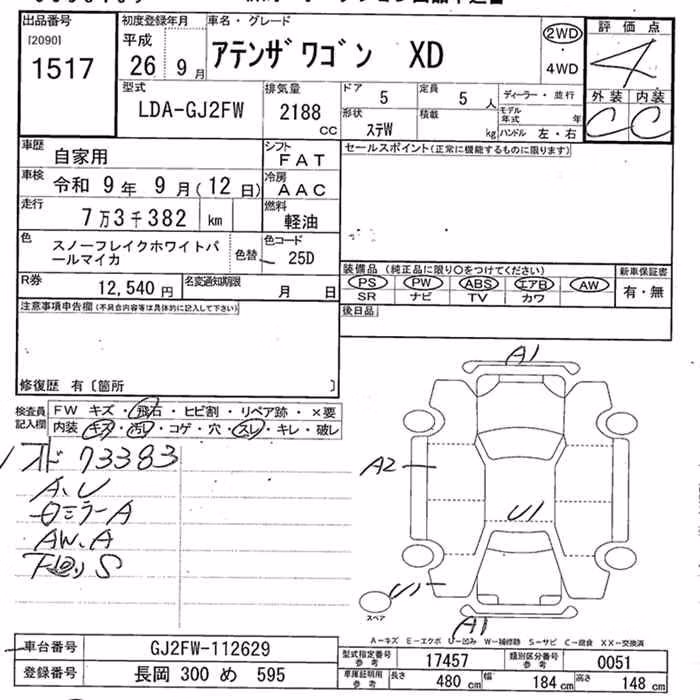 出品番号
[2090]
1517
初度登録年月
平成
26 9 月
車名・グレード
アテンザワゴン XD
2WD
・
4WD
評価点
4
外装 内装
C C
型式
LDA-GJ2FW
排気量
2188
cc
ドア
5
定員
5 人
形状
ステW
積載
kg
ディーラー・並行
モデル年式 年
ハンドル 左・右
車歴
自家用
シフト
FAT
セールスポイント(正常に機能するものに限ります)
車検
令和 9 年 9 月 ( 12 日)
冷房
AAC
走行
7 万 3 千 382 km
燃料
軽油
色
スノーフレイクホワイトパ
ールマイカ
色替
色コード
25D
装備品 (純正品に限り○をつけてください)
新車保証書
PS PW ABS エアB AW
SR ナビ TV カワ
有・無
R券
12,540 円
名変通知期限
月 日
後日品
注意事項申告欄(不具合内容等は具体的に記入して下さい)
修復歴 有〔箇所 〕
検査員
記入欄
FW キズ・飛石・ヒビ割・リペア跡・×要
内装 キズ・汚レ・コゲ・穴・スレ・キレ・破レ
73383
A、U
ミラーA
AW、A
S
A1
A2
U1
U1
A1
スペア
A-キズ E-エクボ U-凹み W-補修跡 S-サビ C-腐食 XX-交換済
車台番号
GJ2FW-112629
登録番号
長岡 300 め 595
型式指定番号
参考
17457
類別区分番号
参考
0051
車庫証明用
参考
長さ 480 cm 幅 184 cm 高さ 148 cm